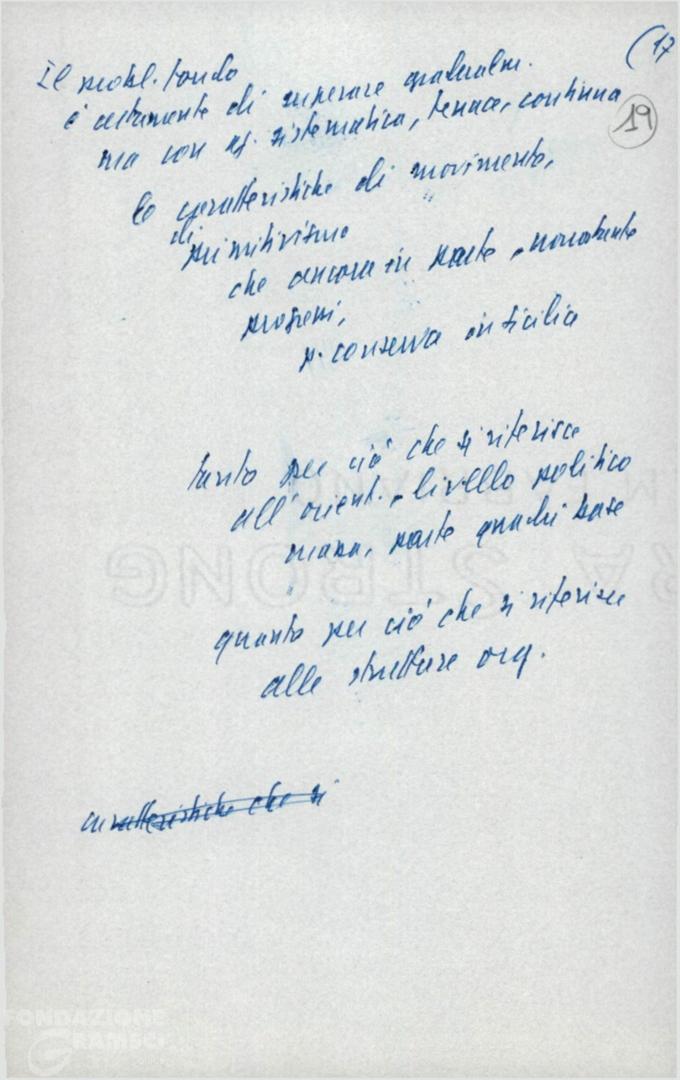 (17
19
Il probl. fondo
è certamente di superare gradualm.
ma con az. sistematica, tenace, continua
le caratteristiche di movimento,
di
primitivismo
che ancora in parte, nonostante
progressi,
si conserva in Sicilia
tanto per ciò che si riferisce
all'orient. livello politico
massa, parte quadri base
quanto per ciò che si riferisce
alle strutture org.
caratteristiche che si
FONDAZIONE
GRAMSCI